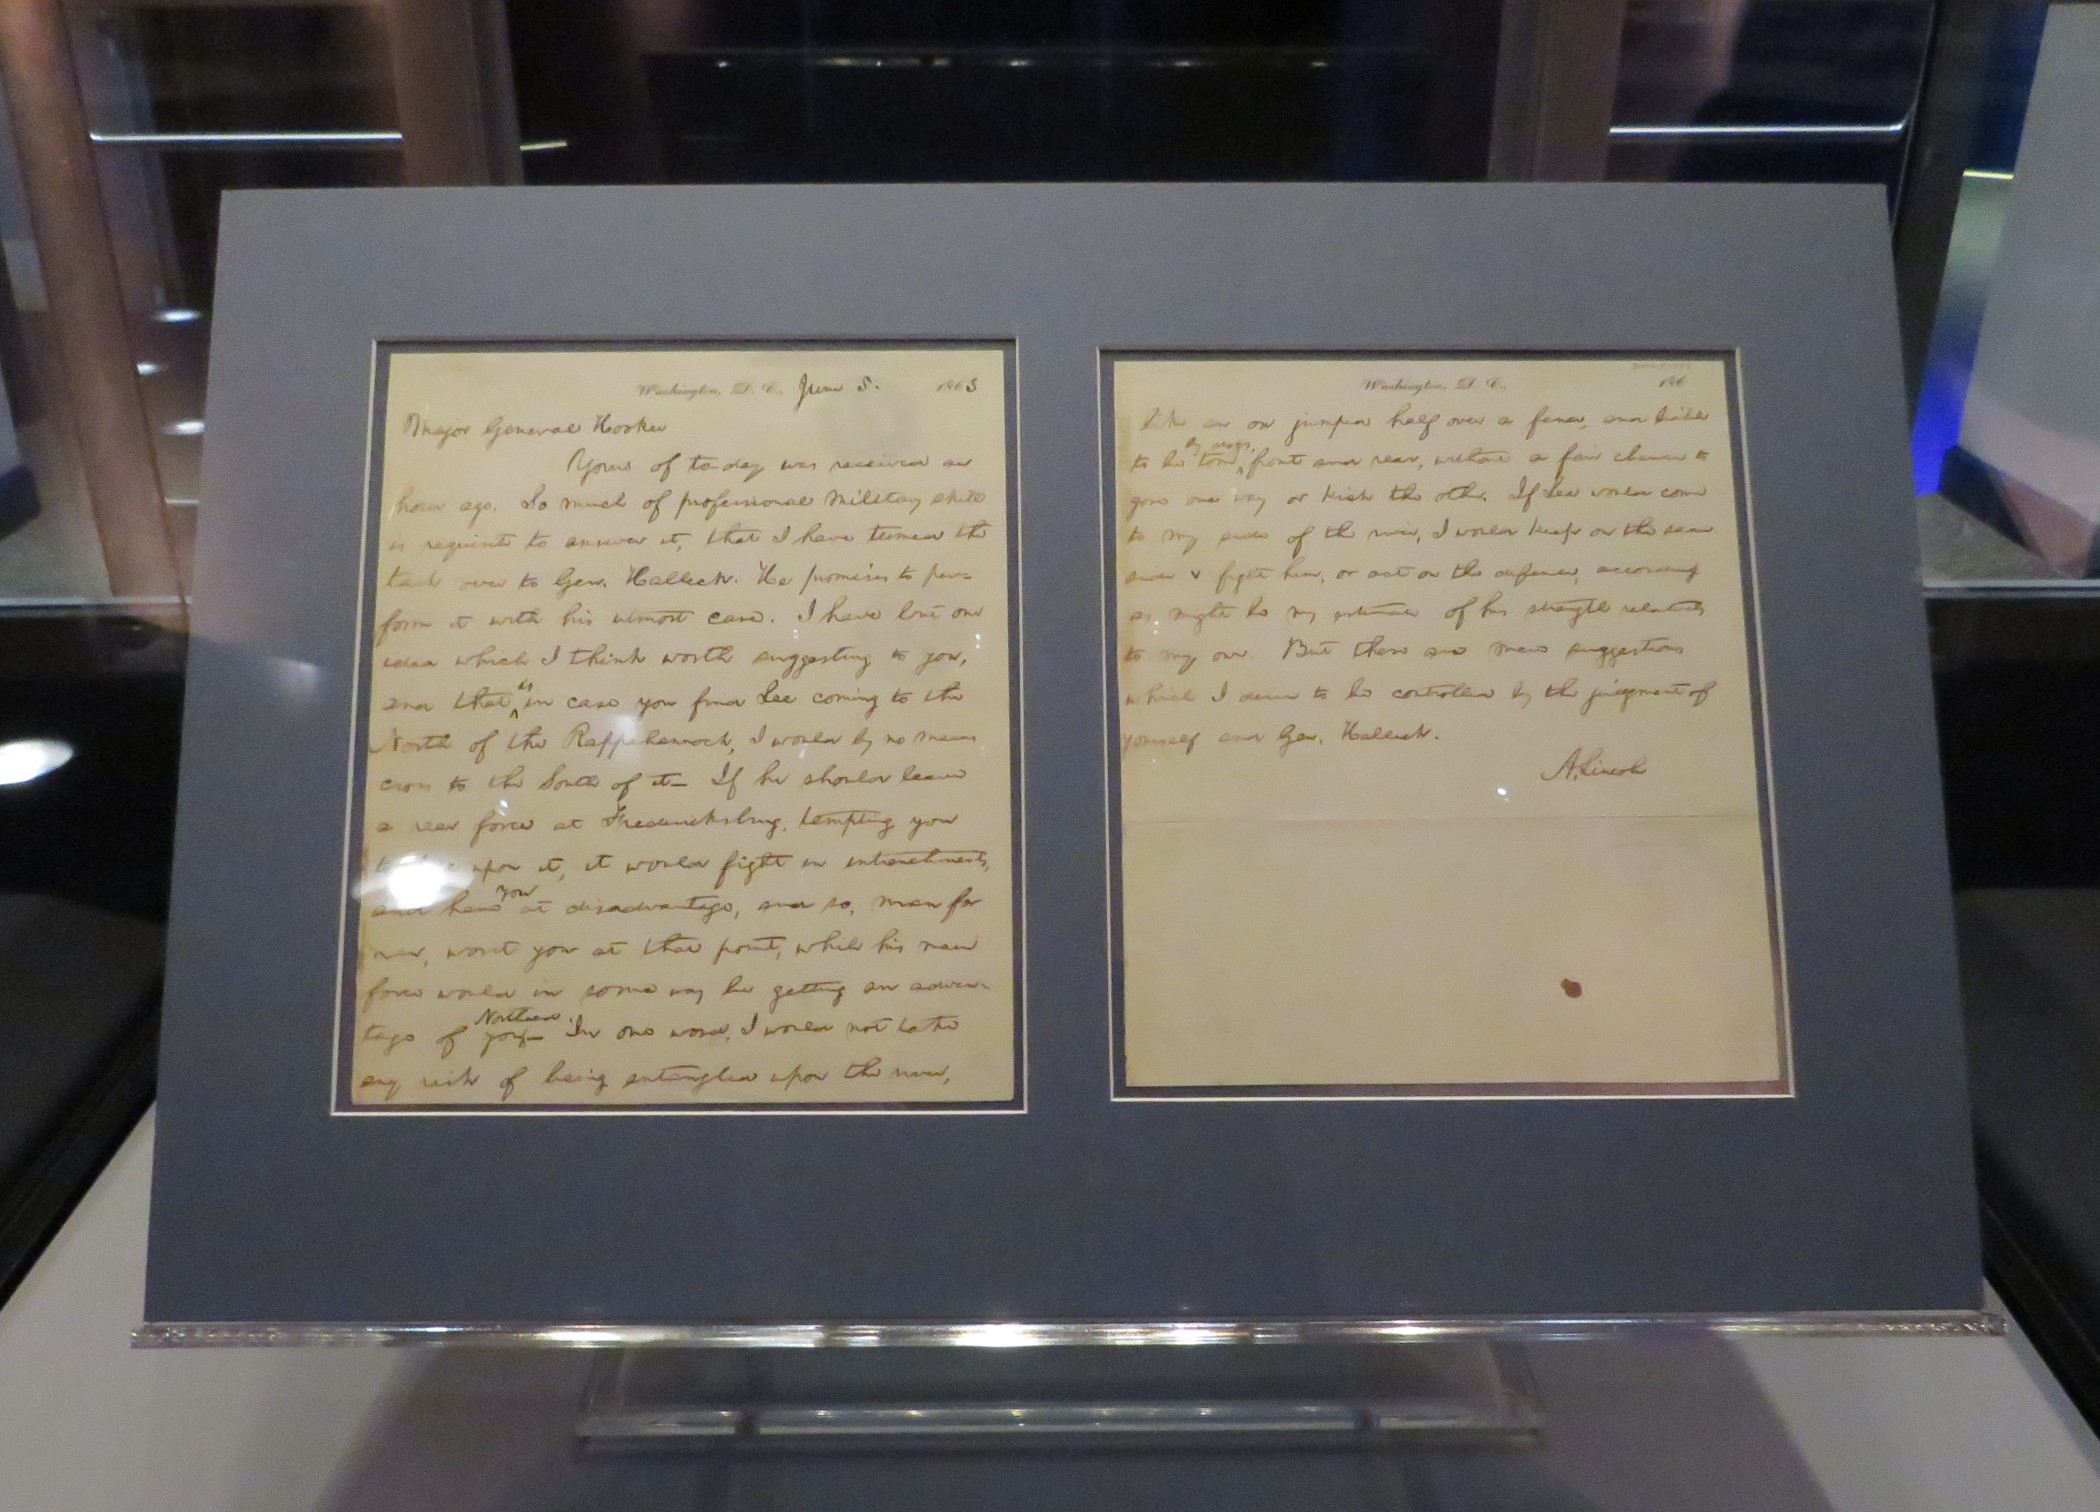 Washington, D. C., June 5. 1863
Major General Hooker
Yours of to-day was received an
hour ago. So much of professional military skill
is requisite to answer it, that I have turned the
task over to Gen. Halleck. He promises to per-
form it with his utmost care. I have but one
idea which I think worth suggesting to you,
and that is in case you find Lee coming to the
North of the Rappahannock, I would by no means
cross to the South of it— If he should leave
a rear force at Fredericksburg, tempting you
to upon it, it would fight in intrenchments,
and have you at disadvantage, and so, man for
man, worst you at that point, while his main
force would in some way be getting an advan-
tage of you Northward. In one word, I would not take
any risk of being entangled upon the river,
Washington, D. C., 186
like an ox jumped half over a fence, and liable
to be torn by dogs, front and rear, without a fair chance to
gore one way or kick the other. If Lee would come
to my side of the river, I would keep on the same
side & fight him, or act on the defence, according
as might be my estimate of his strength relatively
to my own. But these are mere suggestions
which I desire to be controlled by the judgment of
yourself and Gen. Halleck.
A. Lincoln